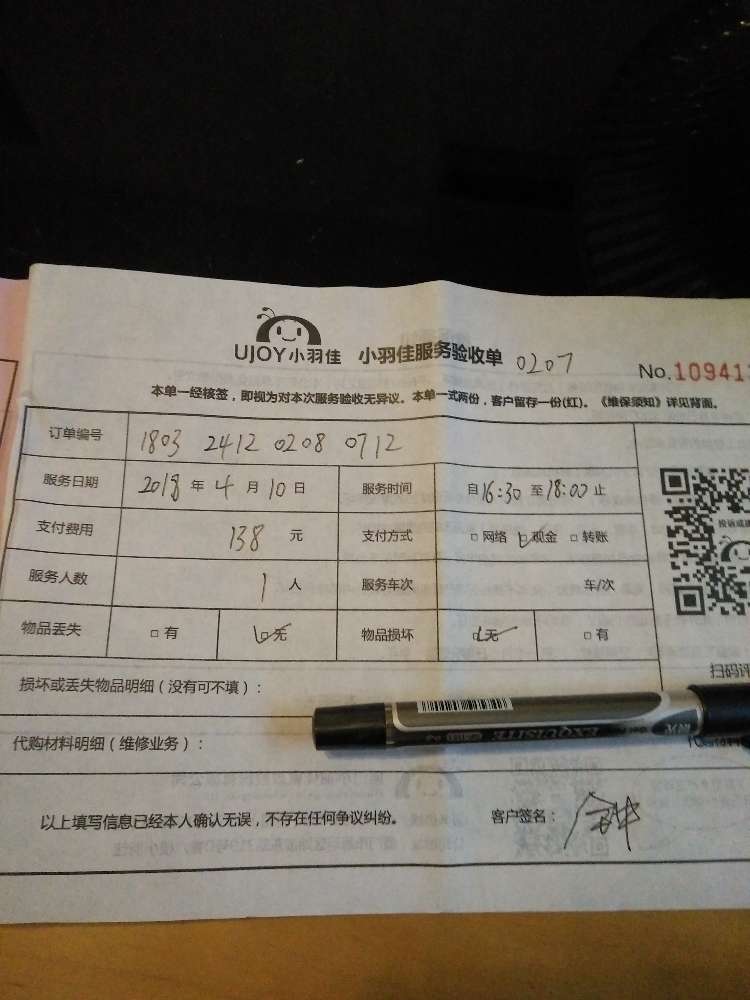 UJOY小羽佳 小羽佳服务验收单 0207
No.10941
本单一经核签，即视为对本次服务验收无异议。本单一式两份，客户留存一份(红)。《维保须知》详见背面。
订单编号 1803 2412 0208 0712
服务日期 2018 年 4 月 10 日 服务时间 自16:30 至18:00 止
支付费用 138 元 支付方式 □ 网络 □ 现金 □ 转账
服务人数 1 人 服务车次 车/次
物品丢失 □ 有 □ 无 物品损坏 □ 无 □ 有
扫码评
损坏或丢失物品明细（没有可不填）：
代购材料明细（维修业务）：
EXQUISITE
以上填写信息已经本人确认无误，不存在任何争议纠纷。 客户签名：